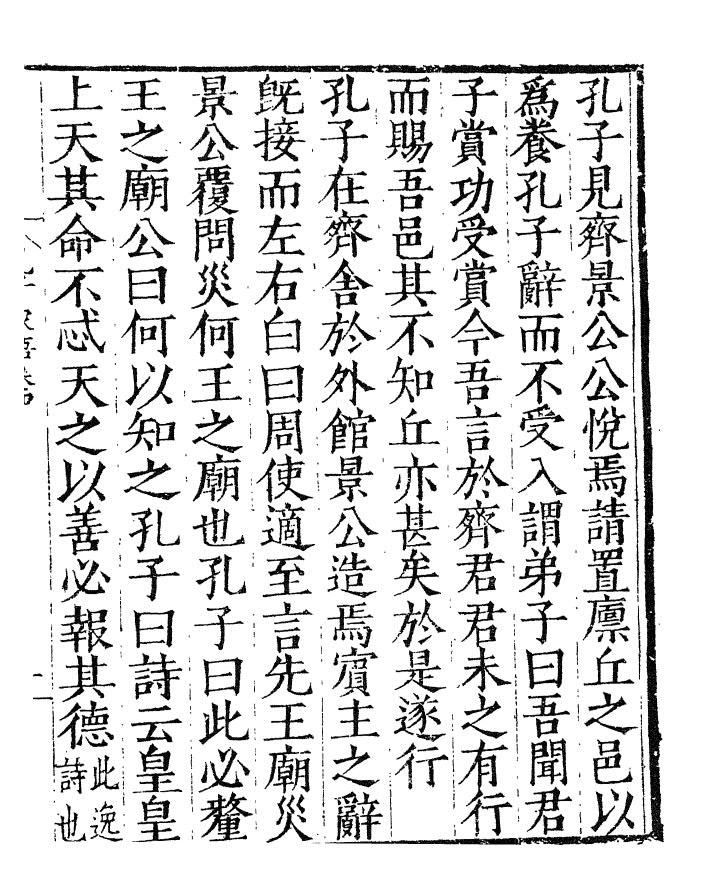 孔子見齊景公公悅焉請置廪丘之邑以
爲養孔子辭而不受入謂弟子曰吾聞君
子賞功受賞今吾言於齊君君未之有行
而賜吾邑其不知丘亦甚矣於是遂行
孔子在齊舍於外館景公造焉賔主之辭
旣接而左右白曰周使適至言先王廟災
景公覆問災何王之廟也孔子曰此必釐
王之廟公曰何以知之孔子曰詩云皇皇
上天其命不忒天之以善必報其德
此逸
詩也